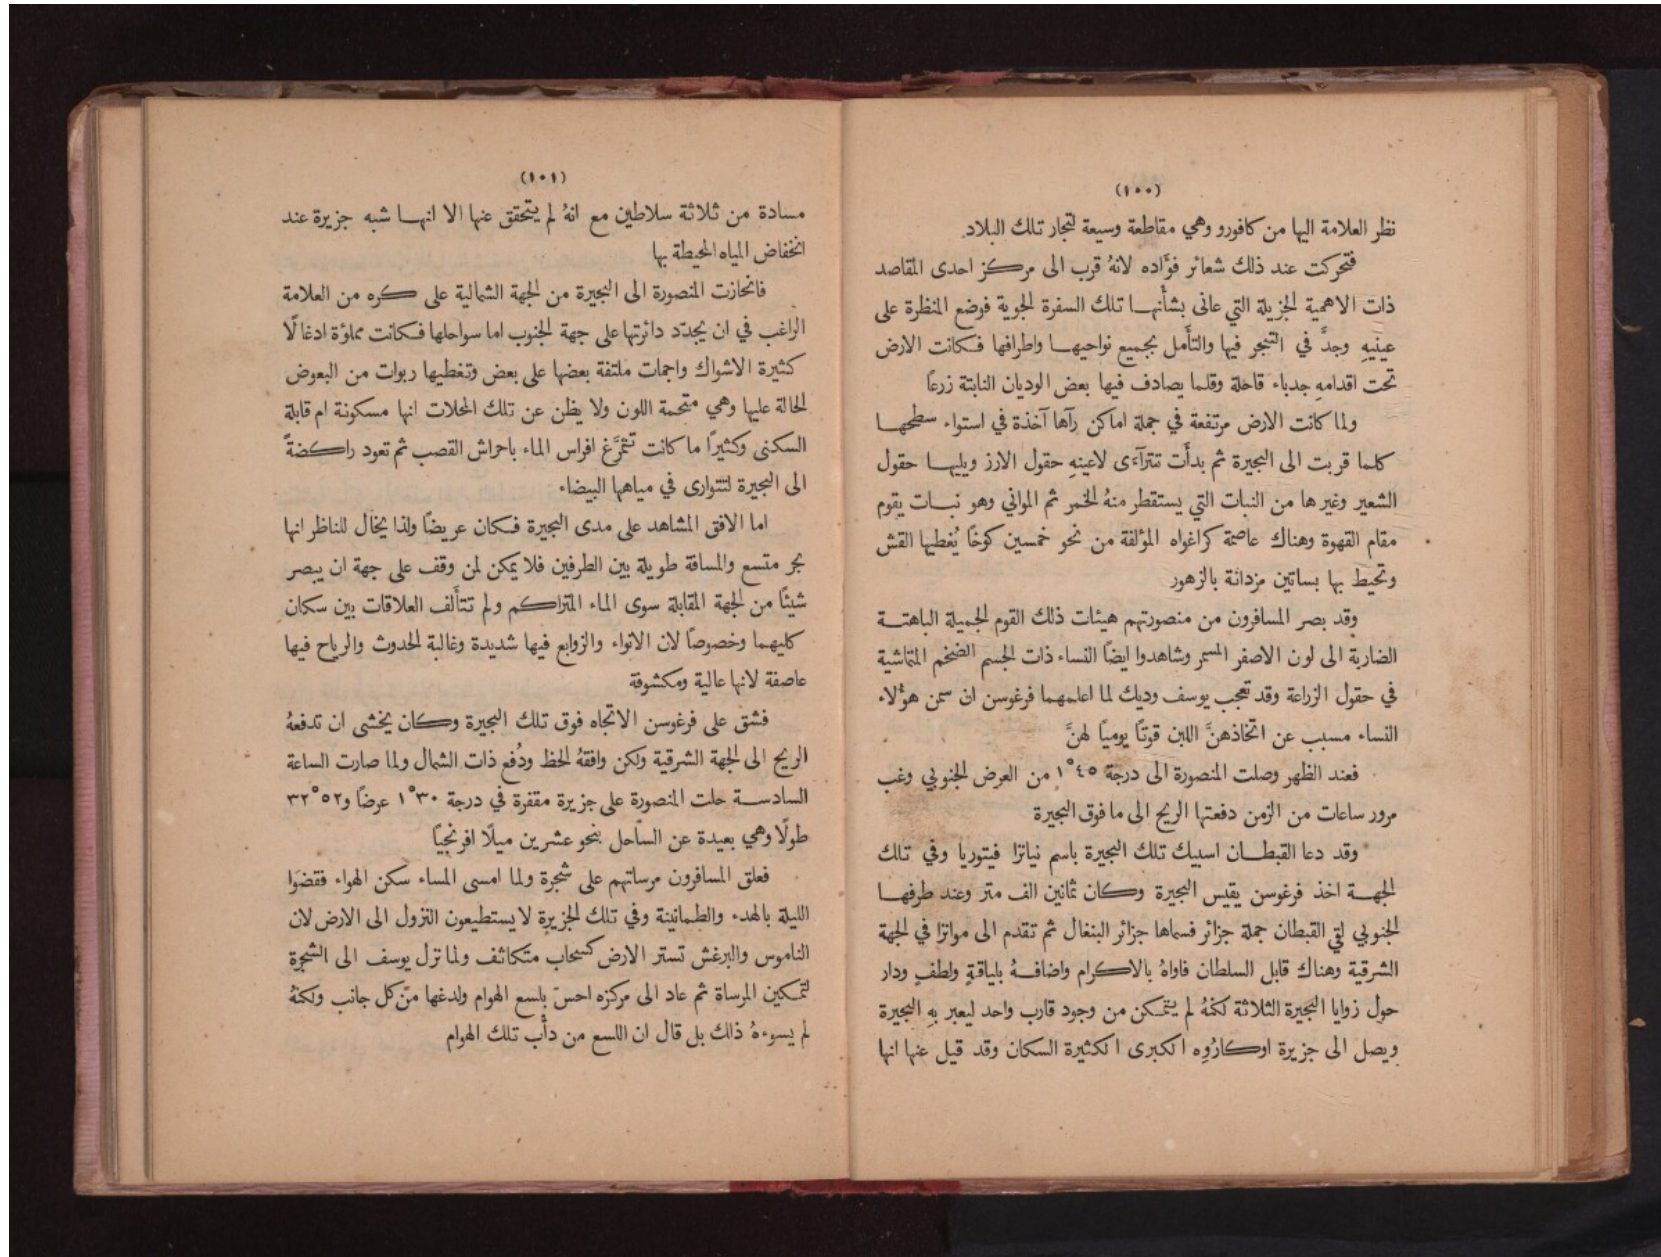 (١٠٠)
نظر العلامة اليها من كافورو وهي مقاطعة وسيعة لتجار تلك البلاد
فتحركت عند ذلك شعائر فؤَاده لانهُ قرب الى مركز احدى المقاصد
ذات الاهمية الجزيلة التي عانى بشأنها تلك السفرة الجوية فوضع المنظرة على
عينيهِ وجدَّ في التبحر فيها والتأمل بجميع نواحيها واطرافها فكانت الارض
تحت اقدامهِ جدباء قاحلة وقلما يصادف فيها بعض الوديان النابتة زرعًا
ولما كانت الارض مرتفعة في جملة اماكن رآها آخذة في استواء سطحها
كلما قربت الى البحيرة ثم بدأَت تترآءَى لاعينهِ حقول الارز ويليها حقول
الشعير وغيرها من النبات التي يستقطر منهُ الخمر ثم المواني وهو نبات يقوم
مقام القهوة وهناك عاصمة كراغواه المؤلفة من نحو خمسين كوخًا يُغطيها القش
وتحيط بها بساتين مزدانة بالزهور
وقد بصر المسافرون من منصورتهم هيئات ذلك القوم الجميلة الباهتة
الضاربة الى لون الاصفر المسمر وشاهدوا ايضًا النساء ذات الجسم الضخم المتماشية
في حقول الزراعة وقد تعجب يوسف وديك لما اعلمهما فرغوسن ان سمن هؤلاء
النساء مسبب عن اتخاذهنَّ اللبن قوتًا يوميًا لهنَّ
فعند الظهر وصلت المنصورة الى درجة ٤٥ ١° من العرض الجنوبي وغب
مرور ساعات من الزمن دفعتها الريح الى ما فوق البحيرة
وقد دعا القبطان اسبيك تلك البحيرة باسم نيانزا فيتوريا وفي تلك
الجهة اخذ فرغوسن يقيس البحيرة وكان ثمانين الف متر وعند طرفها
الجنوبي لقي القبطان جملة جزائر فسماها جزائر البنغال ثم تقدم الى موانزا في الجهة
الشرقية وهناك قابل السلطان فاواهُ بالاكرام واضافهُ بلياقةٍ ولطفٍ ودار
حول زوايا البحيرة الثلاثة لكنهُ لم يتمكن من وجود قارب واحد ليعبر بهِ البحيرة
ويصل الى جزيرة اوكارُوه الكبرى الكثيرة السكان وقد قيل عنها انها
(١٠١)
مسادة من ثلاثة سلاطين مع انهُ لم يتحقق عنها الا انها شبه جزيرة عند
انخفاض المياه المحيطة بها
فانحازت المنصورة الى البحيرة من الجهة الشمالية على كره من العلامة
الراغب في ان يحدّد دائرتها على جهة الجنوب اما سواحلها فكانت مملؤة ادغالًا
كثيرة الاشواك واجمات ملتفة بعضها على بعض وتغطيها ربوات من البعوض
الحالة عليها وهي متحمة اللون ولا يظن عن تلك المحلات انها مسكونة ام قابلة
السكنى وكثيرًا ما كانت تتمرَّغ افراس الماء باحراش القصب ثم تعود راكضةً
الى البحيرة لتتوارى في مياهها البيضاء
اما الافق المشاهد على مدى البحيرة فكان عريضًا ولذا يخال للناظر انها
بحر متسع والمسافة طويلة بين الطرفين فلا يمكن لمن وقف على جهة ان يبصر
شيئًا من الجهة المقابلة سوى الماء المتراكم ولم تتأَلف العلاقات بين سكان
كليهما وخصوصًا لان الانواء والزوابع فيها شديدة وغالبة الحدوث والرياح فيها
عاصفة لانها عالية ومكشوفة
فشق على فرغوسن الاتجاه فوق تلك البحيرة وكان يخشى ان تدفعهُ
الريح الى الجهة الشرقية ولكن وافقهُ الحظ ودُفع ذات الشمال ولما صارت الساعة
السادسة حلت المنصورة على جزيرة مقفرة في درجة ٣٠ ١° عرضًا و٥٢ ٣٢°
طولًا وهي بعيدة عن الساحل بنحو عشرين ميلًا افرنجيًا
فعلق المسافرون مرساتهم على شجرة ولما امسى المساء سكن الهواء فقضوا
الليلة بالهدء والطمانينة وفي تلك الجزيرة لا يستطيعون النزول الى الارض لان
الناموس والبرغش تستر الارض كسحاب متكاثف ولما نزل يوسف الى الشجرة
لتمكين المرساة ثم عاد الى مركزه احسّ بلسع الهوام ولدغها من كل جانب ولكنهُ
لم يسوءهُ ذلك بل قال ان اللسع من دأْب تلك الهوام